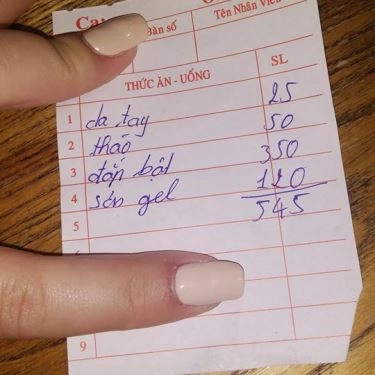 Bàn số
Tên Nhân Viên
THỨC ĂN - UỐNG SL
1 da tay 25
2 tháo 50
3 đắp bột 350
4 sơn gel 120
545
5
9